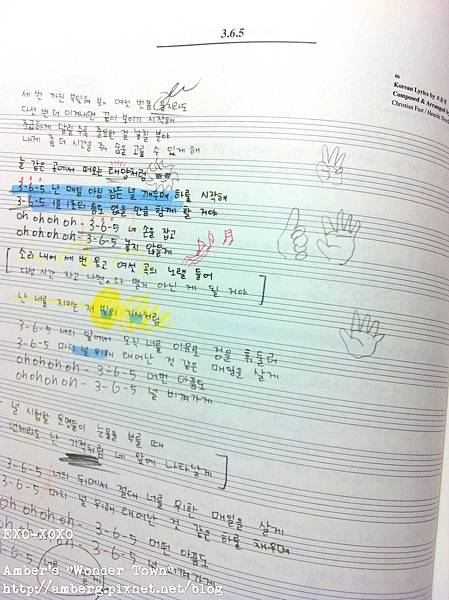 3.6.5
66
Korean Lyrics by 조윤경
Composed & Arranged by
Christian Fast / Henrik Nord
세 번 까진 부딪혀 봐 여섯 번쯤 울지라도
다섯 번 더 이겨내면 끝이 보이기 시작해
조급하게 달릴 수록 중요한 걸 놓칠 뿐야
내게 좀 더 시간을 줘 숨을 고를 수 있게 해
늘 같은 곳에서 떠오는 태양처럼
3-6-5 난 매일 아침 잠든 널 깨우며 하루를 시작해
3-6-5 1분 1초의 틈도 없을 만큼 함께 할 거야
oh oh oh oh - 3-6-5 네 손을 잡고
oh oh oh oh - 3-6-5 놓지 않을게
소리 내어 세 번 웃고 여섯 곡의 노랠 들어
다섯 시간 자고 나면 다 별거 아닌 게 될 거야
난 너를 지키는 저 빛의 기사처럼
3-6-5 너의 앞에서 오직 너를 이유로 검을 휘둘러
3-6-5 마치 널 위해 태어난 것 같은 매일을 살게
oh oh oh oh - 3-6-5 어떤 아픔도
oh oh oh oh - 3-6-5 널 비켜가게
널 시험할 운명들이 눈물을 부를 때
언제라도 난 기적처럼 네 앞에 나타날게
3-6-5 너의 뒤에서 절대 너를 위한 매일을 살게
3-6-5 마치 널 위해 태어난 것 같은 하루를 채우며
oh oh oh oh - 3-6-5 어떤 아픔도
oh oh oh oh - 3-6-5 널 비켜가게
EXO-XOXO
Amber's "Wonder Town"
http://amberg.pixnet.net/blog